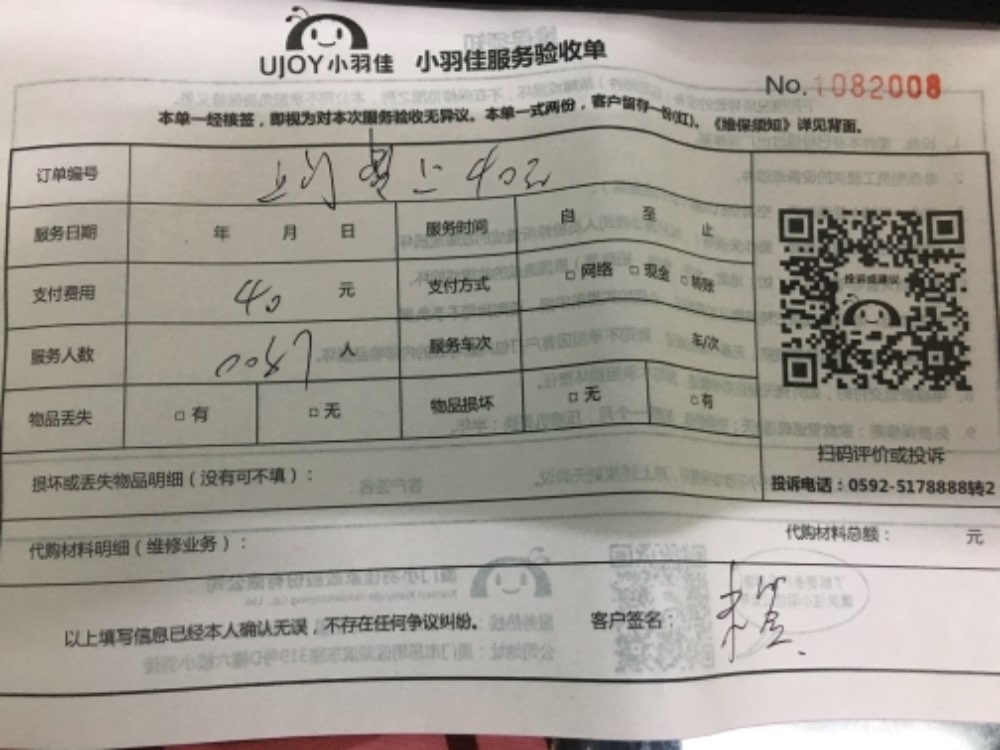 UJOY小羽佳 小羽佳服务验收单
No.1082008
本单一经核签，即视为对本次服务验收无异议。本单一式两份，客户留存一份(红)。《维保须知》详见背面。
订单编号
服务日期 年 月 日 服务时间 自 至 止
支付费用 40 元 支付方式 □ 网络 □ 现金 □ 转账
服务人数 人 服务车次 车/次
物品丢失 □ 有 □ 无 物品损坏 □ 无 □ 有
投诉或建议
扫码评价或投诉
投诉电话：0592-5178888转2
损坏或丢失物品明细（没有可不填）：
代购材料明细（维修业务）： 代购材料总额： 元
以上填写信息已经本人确认无误，不存在任何争议纠纷。 客户签名：